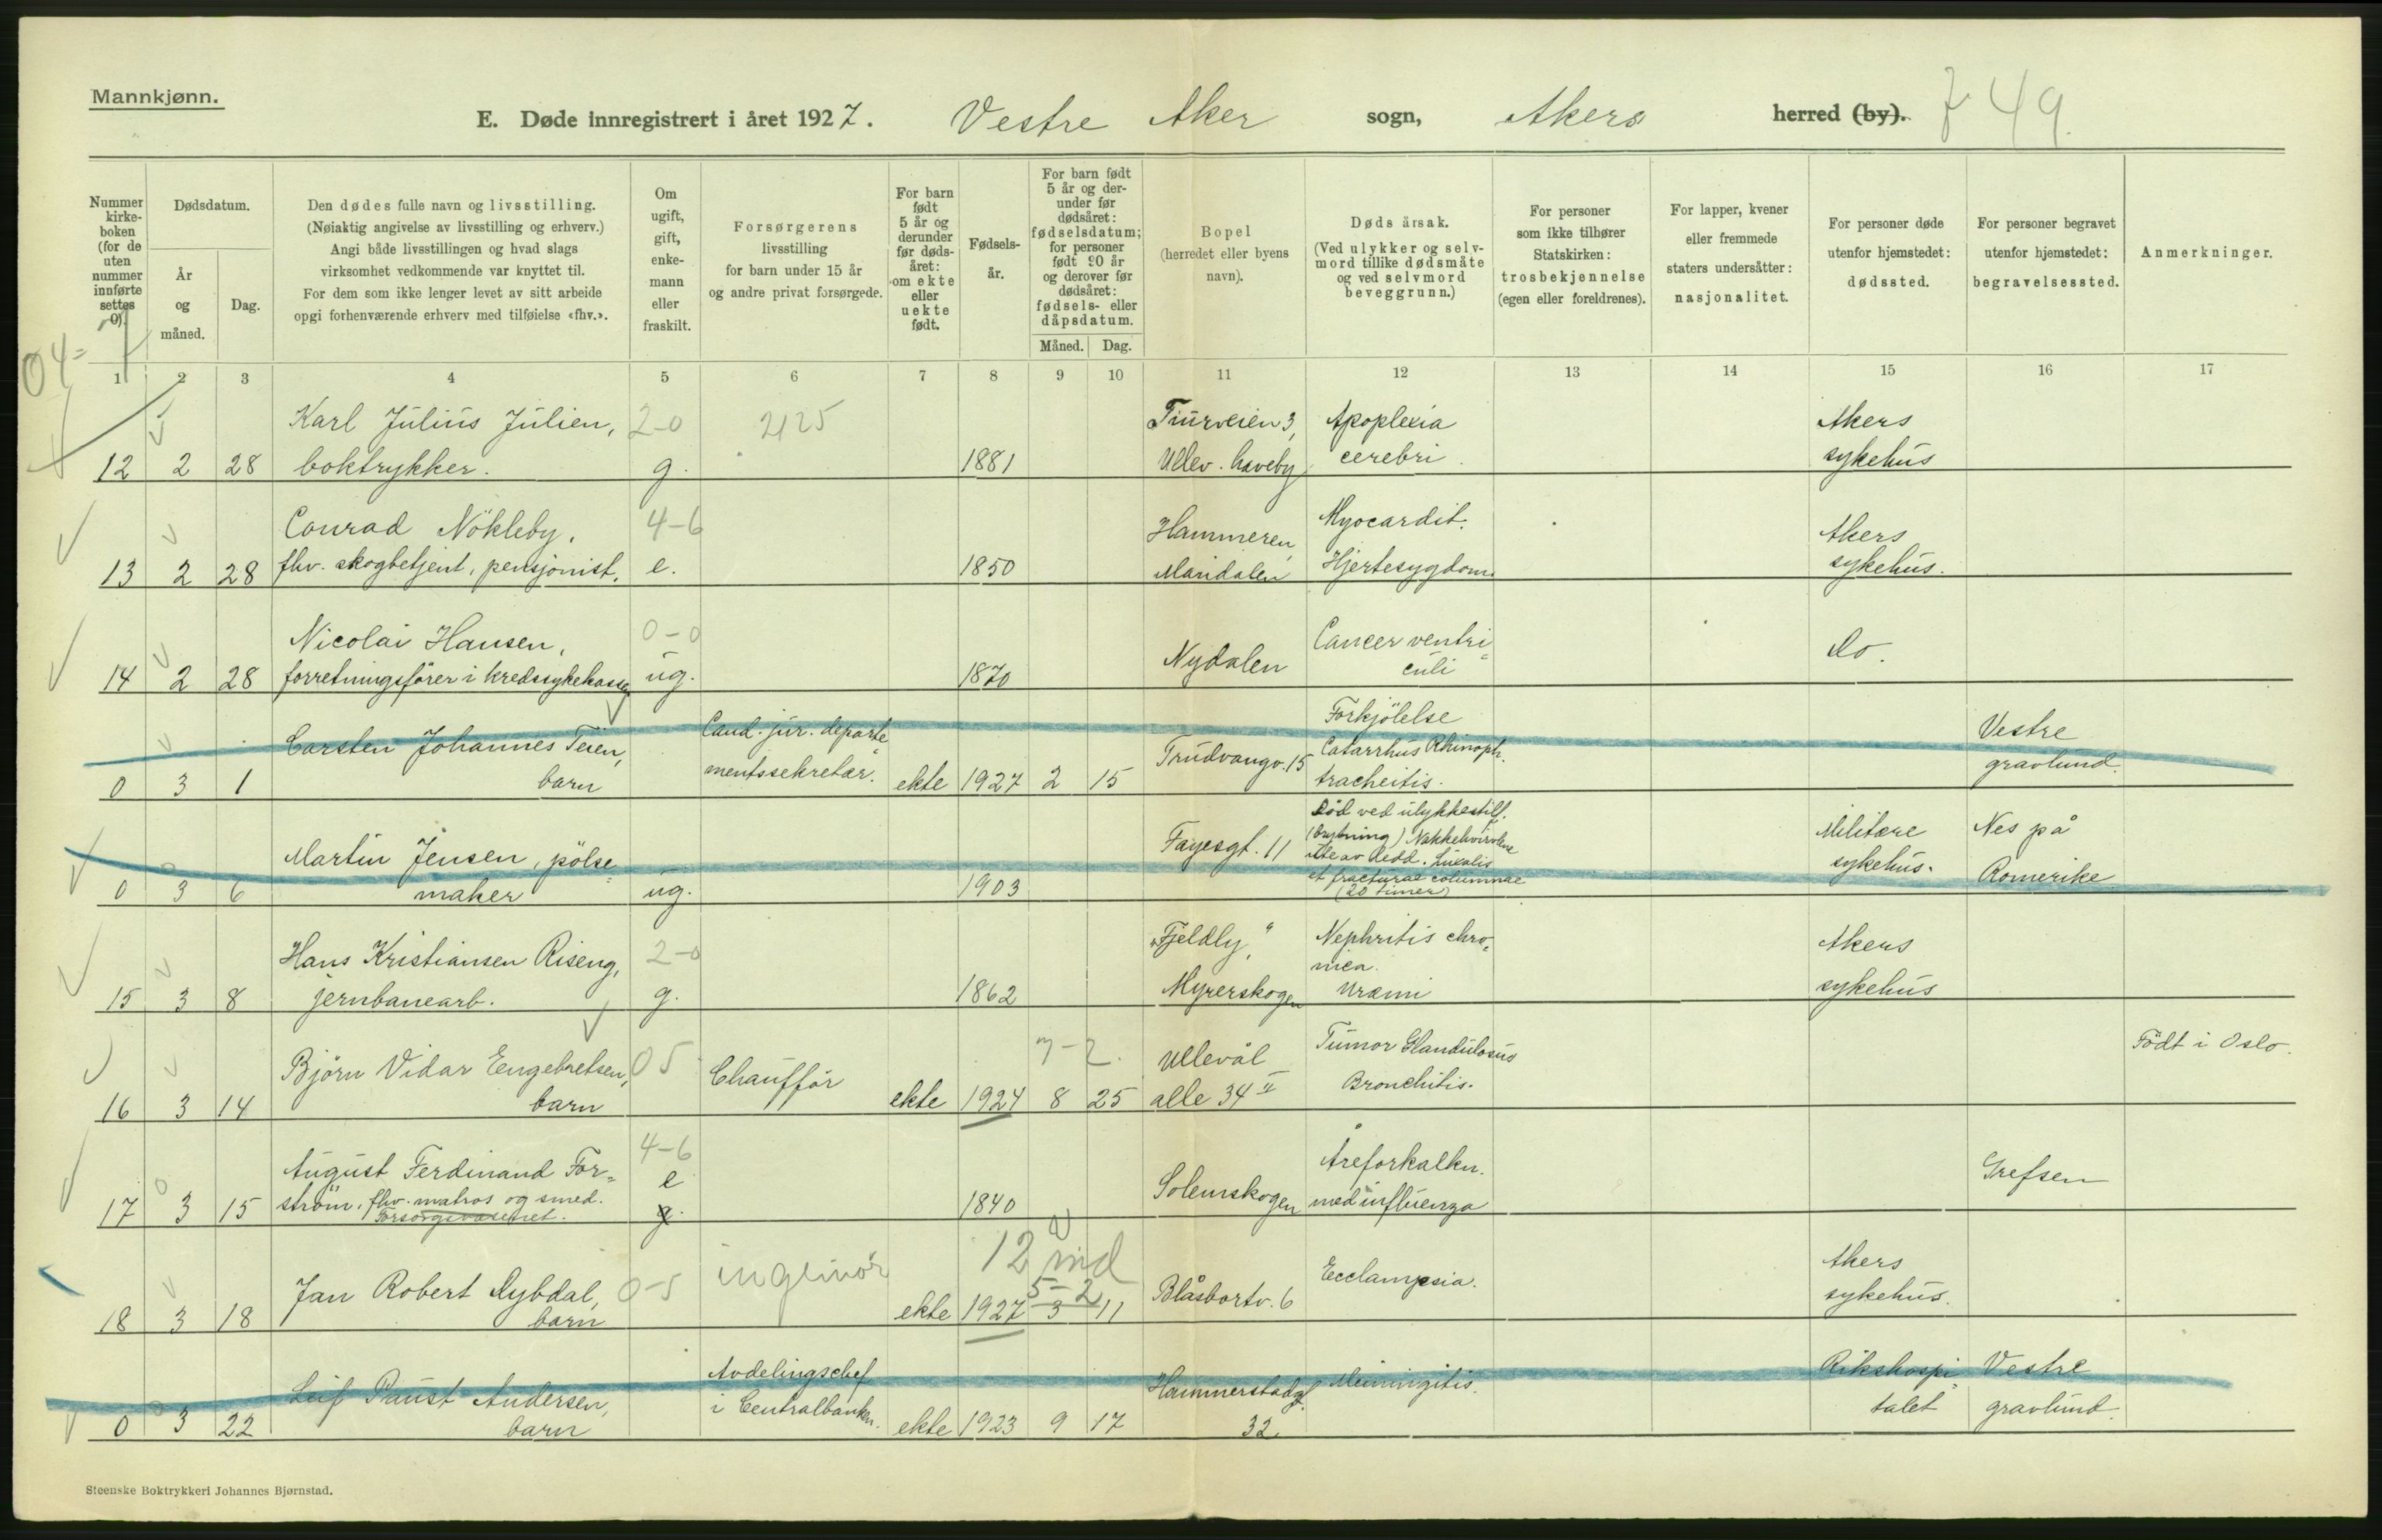 Mannkjønn.
E. Døde innregistrert i året 1927. Vestre Aker sogn, Akers herred (by). 49
Nummer kirke-boken (for de uten nummer innførte settes 0).
Dødsdatum.
År og måned.
Dag.
Den dødes fulle navn og livsstilling.
(Nøiaktig angivelse av livsstilling og erhverv.)
Angi både livsstillingen og hvad slags
virksomhet vedkommende var knyttet til.
For dem som ikke lenger levet av sitt arbeide
opgi forhenværende erhverv med tilføielse «fhv.».
Om ugift, gift, enke-mann eller fraskilt.
Forsørgerens
livsstilling
for barn under 15 år
og andre privat forsørgede.
For barn født 5 år og derunder før døds-året: om ekte eller uekte født.
Fødsels-år.
For barn født 5 år og der-under før dødsåret: fødselsdatum; for personer født 90 år og derover før dødsåret: fødsels- eller dåpsdatum.
Måned. Dag.
Bopel
(herredet eller byens navn).
Døds årsak.
(Ved ulykker og selv-mord tillike dødsmåte og ved selvmord beveggrunn.)
For personer som ikke tilhører Statskirken: trosbekjennelse (egen eller foreldrenes).
For lapper, kvener eller fremmede staters undersåtter: nasjonalitet.
For personer døde utenfor hjemstedet: dødssted.
For personer begravet utenfor hjemstedet: begravelsessted.
Anmerkninger.
04=
1 2 3 4 5 6 7 8 9 10 11 12 13 14 15 16 17
Karl Julius Julien, 2-0 2125 Tiurveien 3, Apoplexia Akers
12 2 28 boktrykker. g. 1881 Ullev. haveby cerebri. sykehus
Conrad Nökleby, 4-6 Hammeren, Myocardit. Akers
13 2 28 fhv. skogbetjent, pensjonist, e. 1850 Maridalen Hjertesygdom. sykehus.
Nicolai Hansen, 0-0 Cancer ventri= do.
14 2 28 forretningsförer i kredssykekasse ug. 1870 Nydalen culi
Carsten Johannes Teien, Cand. jur. departe= Trudvangv. 15 Forkjölelse Catarrhus Rhinoph. Vestre
0 3 1 barn mentssekretær. ekte 1927 2 15 tracheitis. gravlund.
Martin Jensen, pölse= Fayesgt. 11 Död ved ulykkestilf. (brytning) Nakkehvirvlene Militære Nes på
0 3 6 maker ug. 1903 et fracturae columnae (20 timer) sykehus. Romerike
Hans Kristiansen Riseng, 2-0 "Fjeldly", Nephritis chro= nica. Akers
15 3 8 jernbanearb. g. 1862 Myrerskogen Uræmi sykehus
Björn Vidar Eengebretsen, 05 Chaufför 7-2. Ullevål Tumor Glandulosus Födt i Oslo.
16 3 14 barn ekte 1924 8 25 alle 34 II Bronchitis.
August Ferdinand For= 4-6 e Åreforkalkn. Grefsen
17 3 15 ström, fhv. matros og smed. g. 1840 Solemskogen med influenza
Forsorgsvæsenet.
Jan Robert Dybdal, 0-5 ingeniör 12 md 5-2 Blåsbortv. 6 Ecclampsia. Akers
18 3 18 barn ekte 1927 3 11 sykehus.
Leif Paust Andersen, Avdelingschef Hammerstadgt. Meningitis. Rikshospi= Vestre
0 3 22 barn i Centralbanken. ekte 1923 9 17 32. talet gravlund.
Steenske Boktrykkeri Johannes Bjørnstad.